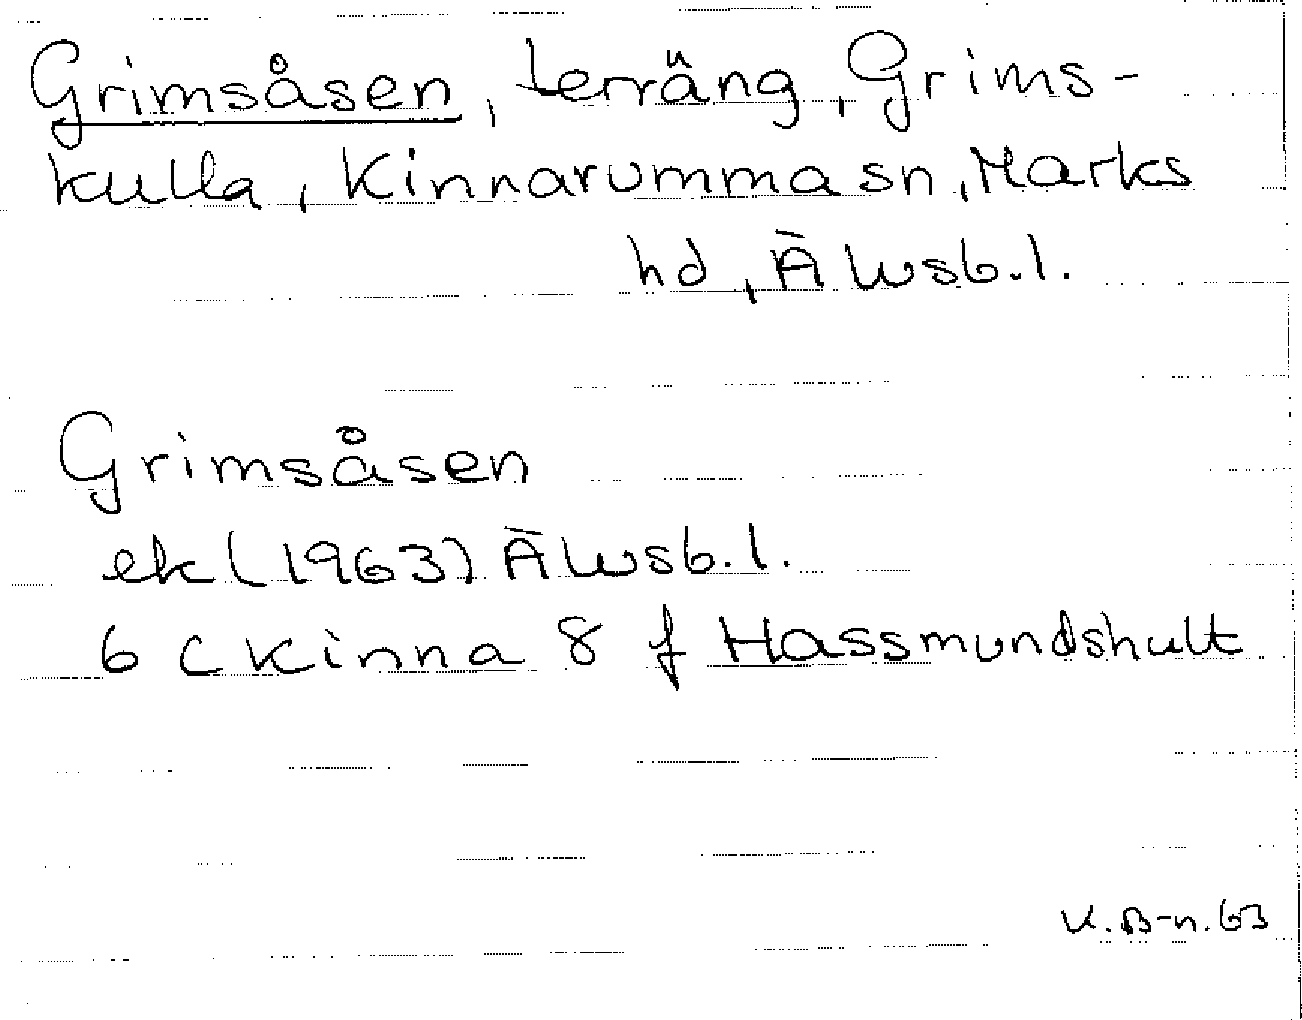 Grimsåsen, terräng, Grims-
kulla, Kinnarumma sn, Marks
hd, Älvsb. l.
Grimsåsen
ek (1963) Älvsb. l.
6 C Kinna 8 f Hassmundshult
K.B-n. 63